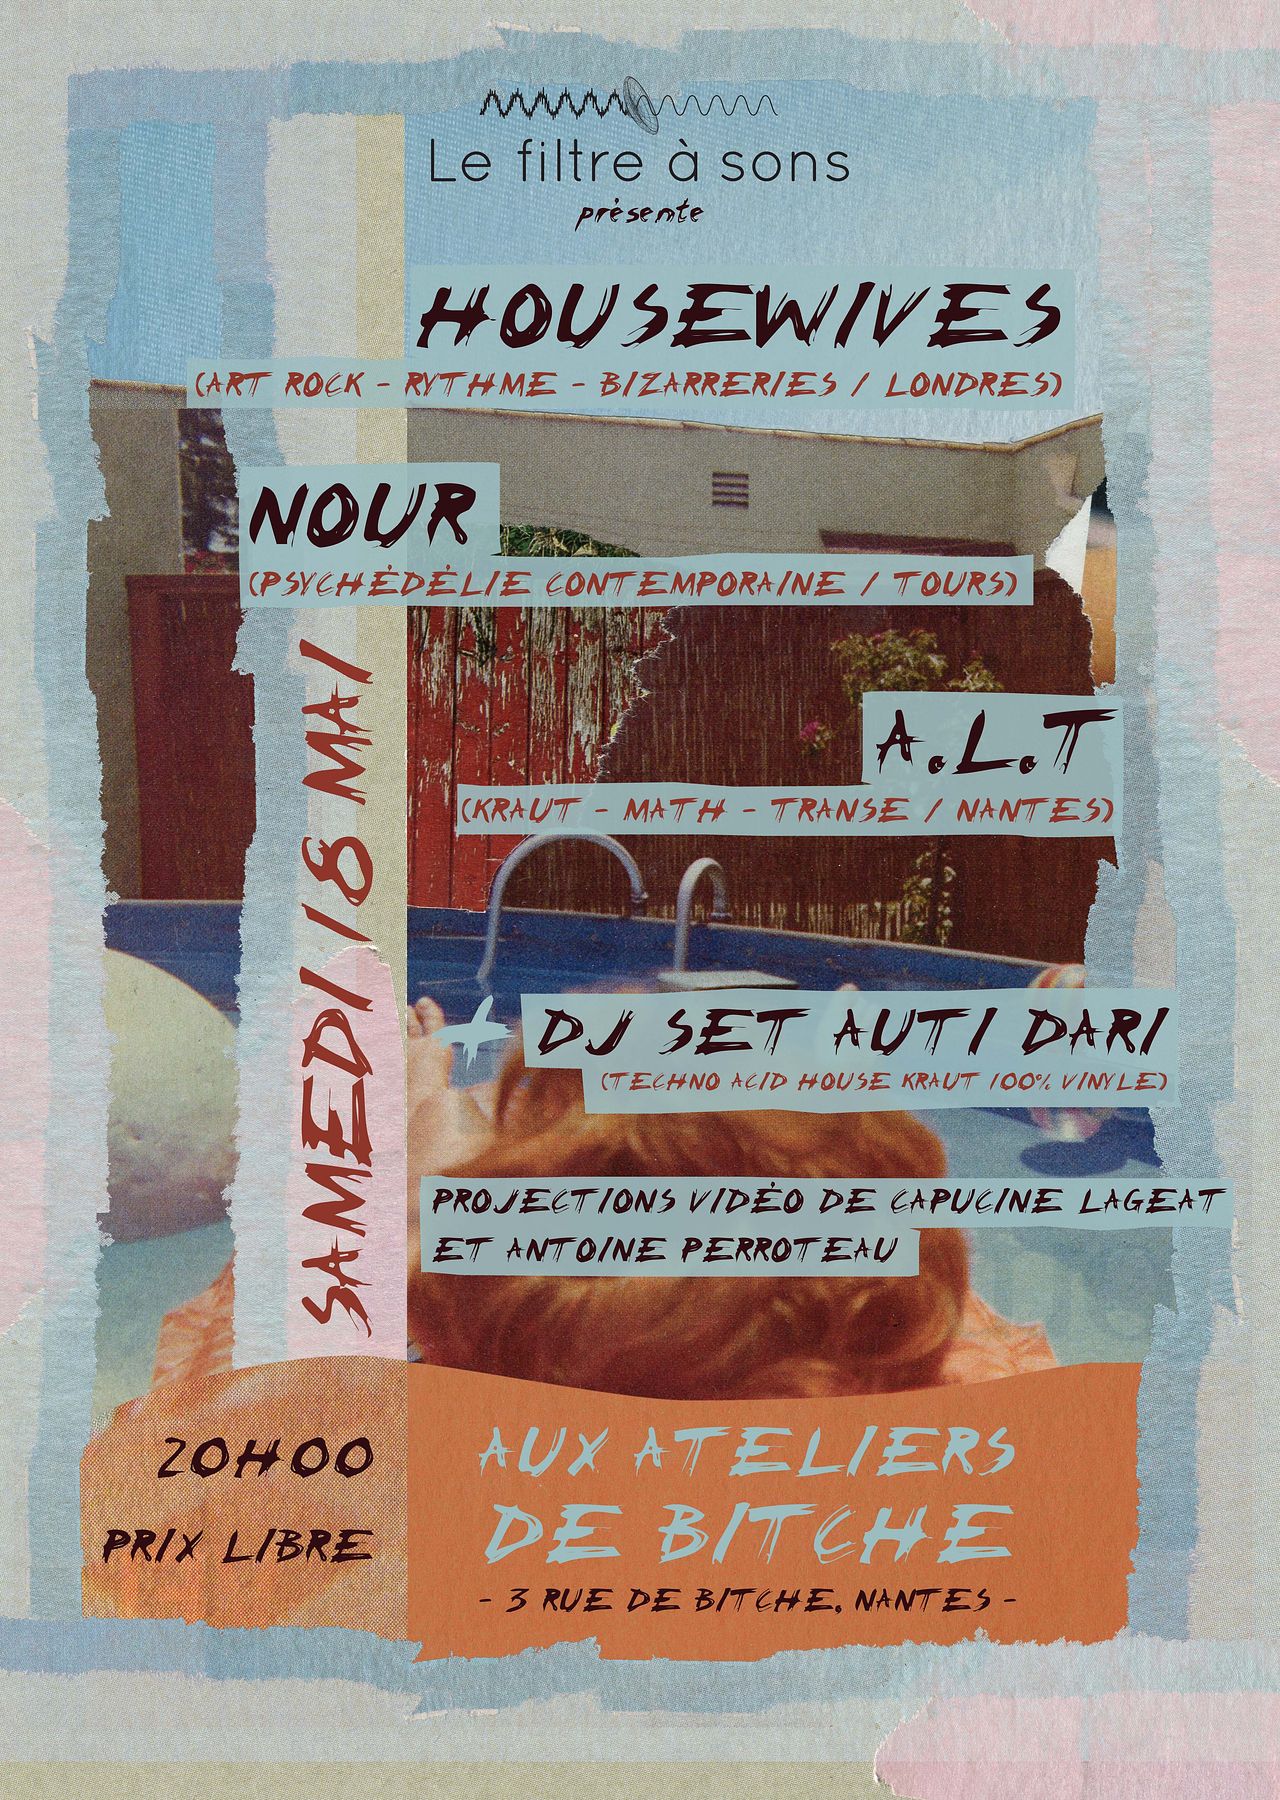 Le filtre à sons
présente
HOUSEWIVES
(ART ROCK - RYTHME - BIZARRERIES / LONDRES)
NOUR
(PSYCHÉDÉLIE CONTEMPORAINE / TOURS)
A.L.T
(KRAUT - MATH - TRANSE / NANTES)
SAMEDI 18 MAI
+ DJ SET AUTI DARI
(TECHNO ACID HOUSE KRAUT 100% VINYLE)
PROJECTIONS VIDÉO DE CAPUCINE LAGEAT
ET ANTOINE PERROTEAU
20H00
PRIX LIBRE
AUX ATELIERS
DE BITCHE
- 3 RUE DE BITCHE, NANTES -